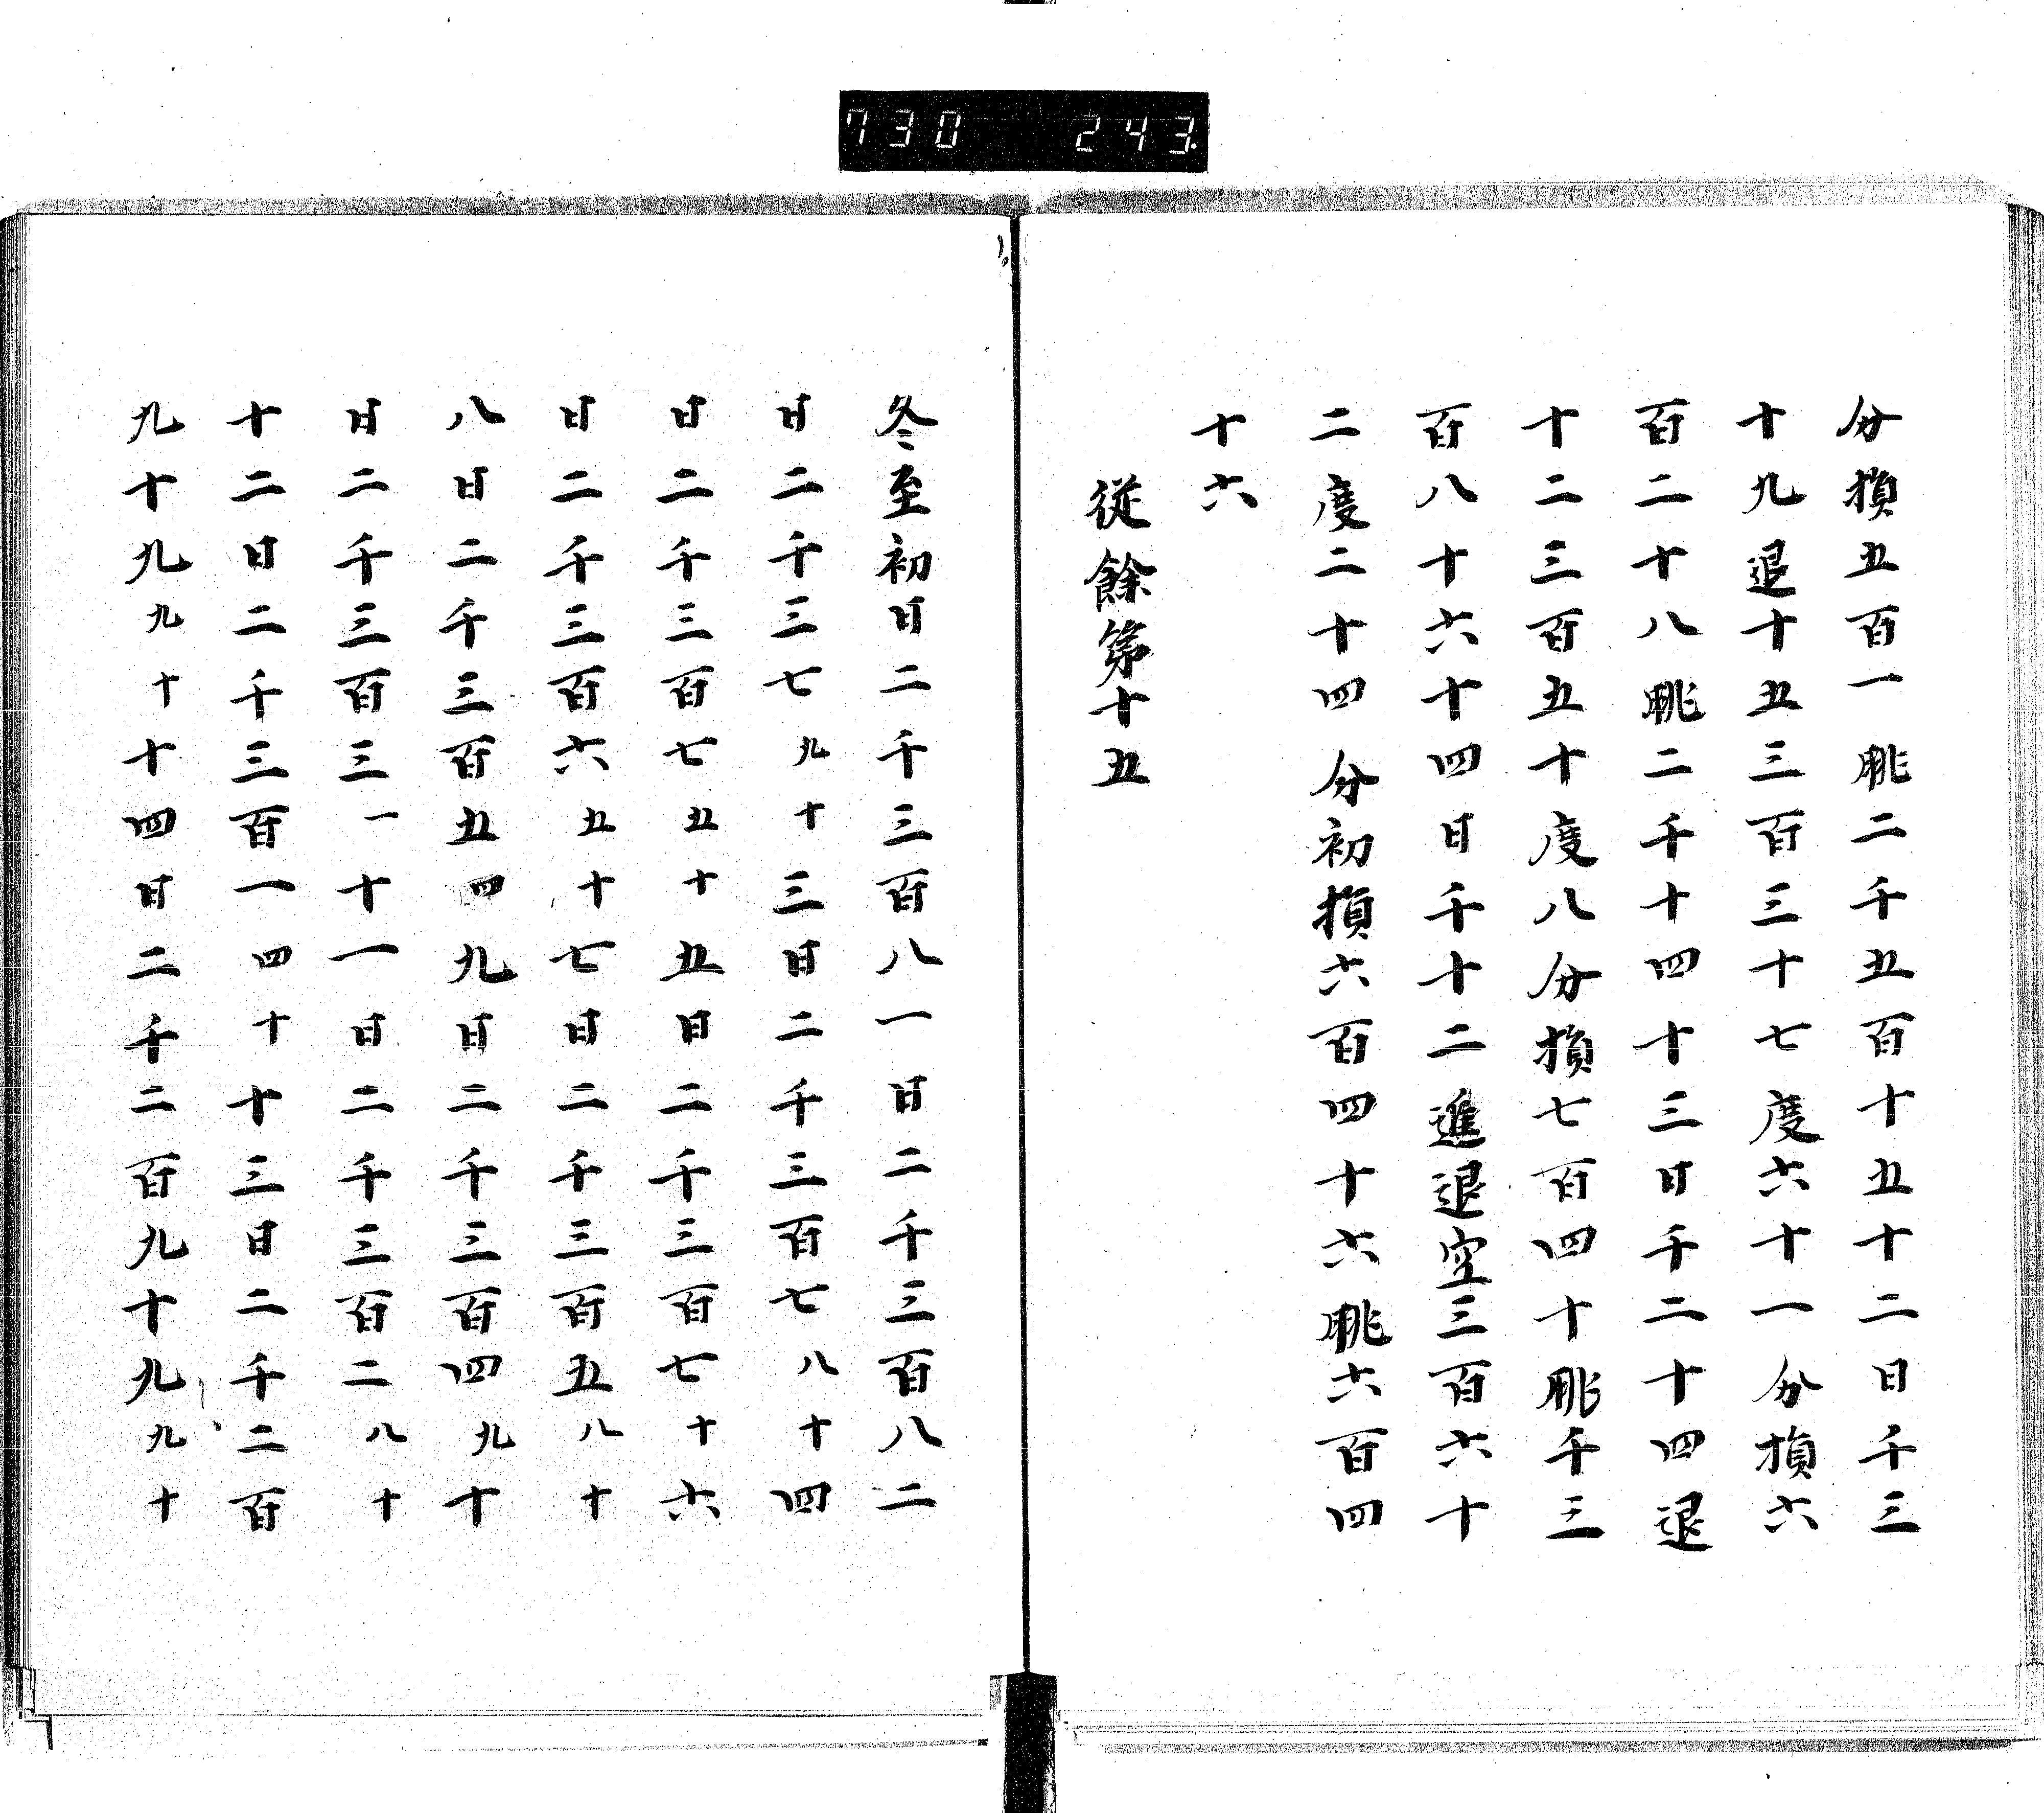 730 243.
分損五百一朓二千五百十五十二日千三
十九退十五三百三十七度六十一分損六
百二十八朓二千十四十三日千二十四退
十二三百五十度八分損七百四十朓千三
百八十六十四日千十二進退空三百六十
二度二十四分初損六百四十六朓六百四
十六
従餘第十五
冬至初日二千三百八一日二千三百八二
日二千三七九十三日二千三百七八十四
日二千三百七五十五日二千三百七十六
日二千三百六五十七日二千三百五八十
八日二千三百五四九日二千三百四九十
日二千三百三一十一日二千三百二八十
十二日二千三百一四十十三日二千二百
九十九九十十四日二千二百九十九九十